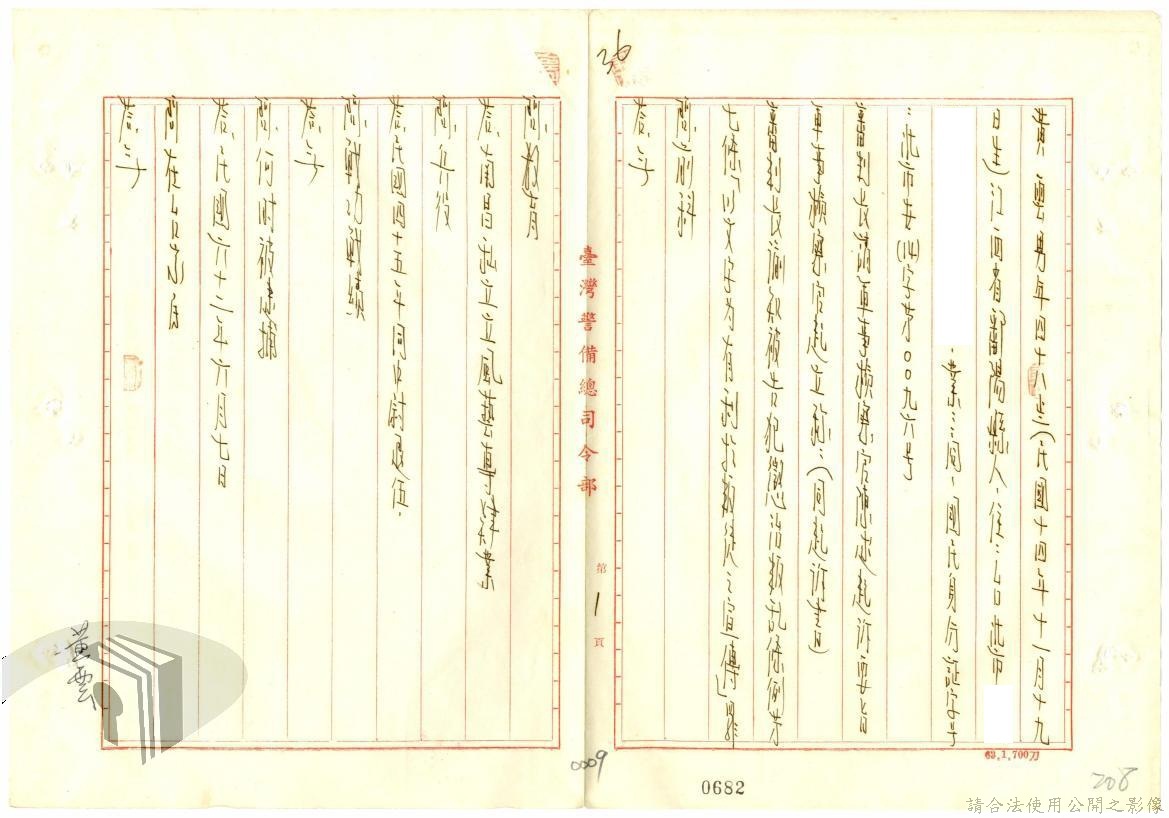 26
黃雲男年四十八歲(民國十四年十一月十九
日生)江西省鄱陽縣人,住:台北市
業:商,國民身分証字号
北市安(14)字第00九六号
審判長請軍事檢察官陳述起訴要旨
軍事檢察官起立稱:(同起訴書)
審判長諭知被告犯懲治叛乱條例第
七條「以文字為有利於叛徒之宣傳」罪
問前科
答無
臺灣警備總司令部
第1頁
問教育
答南昌私立立風藝專肄業
問兵役
答民國四十五年同中尉退伍,
問戰功戰績
答無
問何时被逮捕
答民國六十二年六月七日
問在台家屬
答無
黃雲
0009
0682
63,1,700刀
208
請合法使用公開之影像